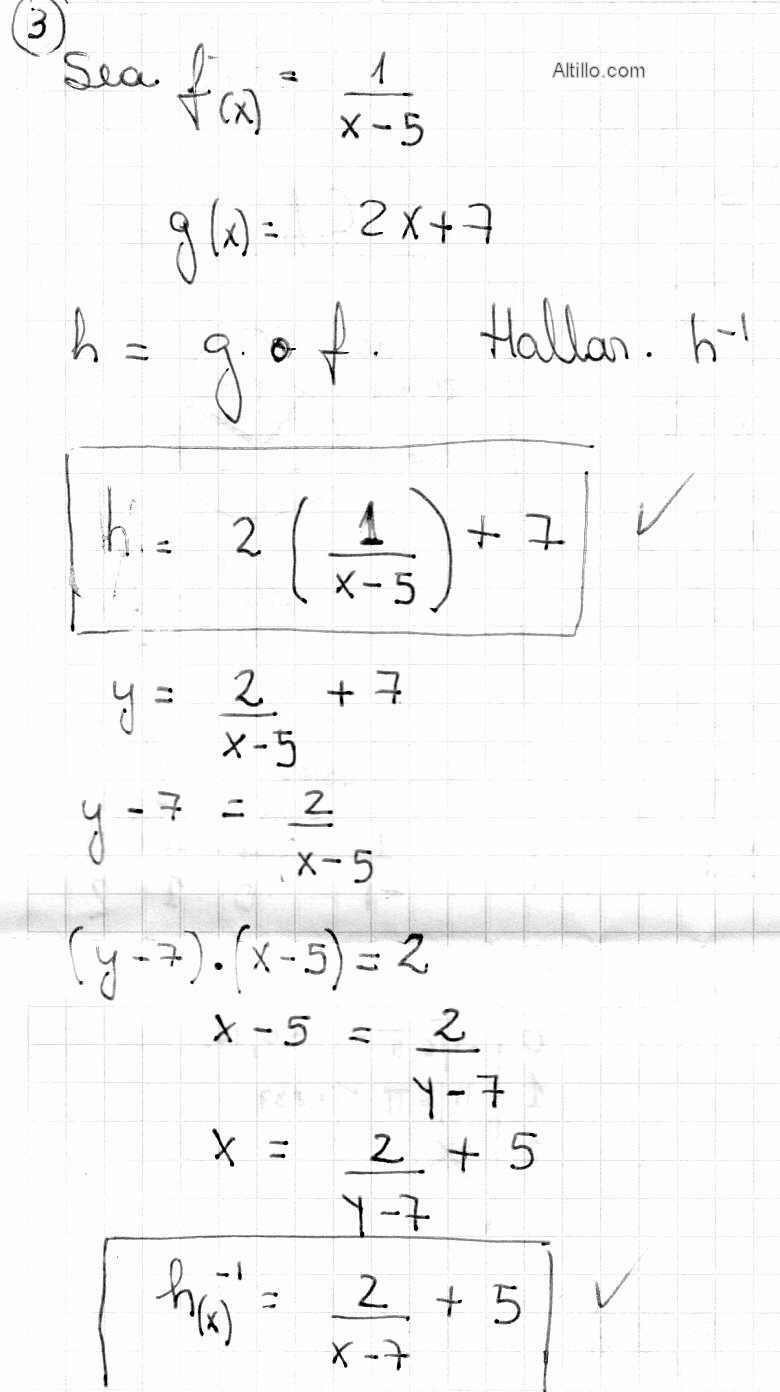 3
Sea f(x) = 1/(x-5)
Altillo.com
g(x) = 2x+7
h = g o f. Hallar. h⁻¹
h = 2 (1/(x-5)) + 7 ✓
y = 2/(x-5) + 7
y - 7 = 2/(x-5)
(y-7).(x-5) = 2
x - 5 = 2/(y-7)
x = 2/(y-7) + 5
h⁻¹(x) = 2/(x-7) + 5 ✓